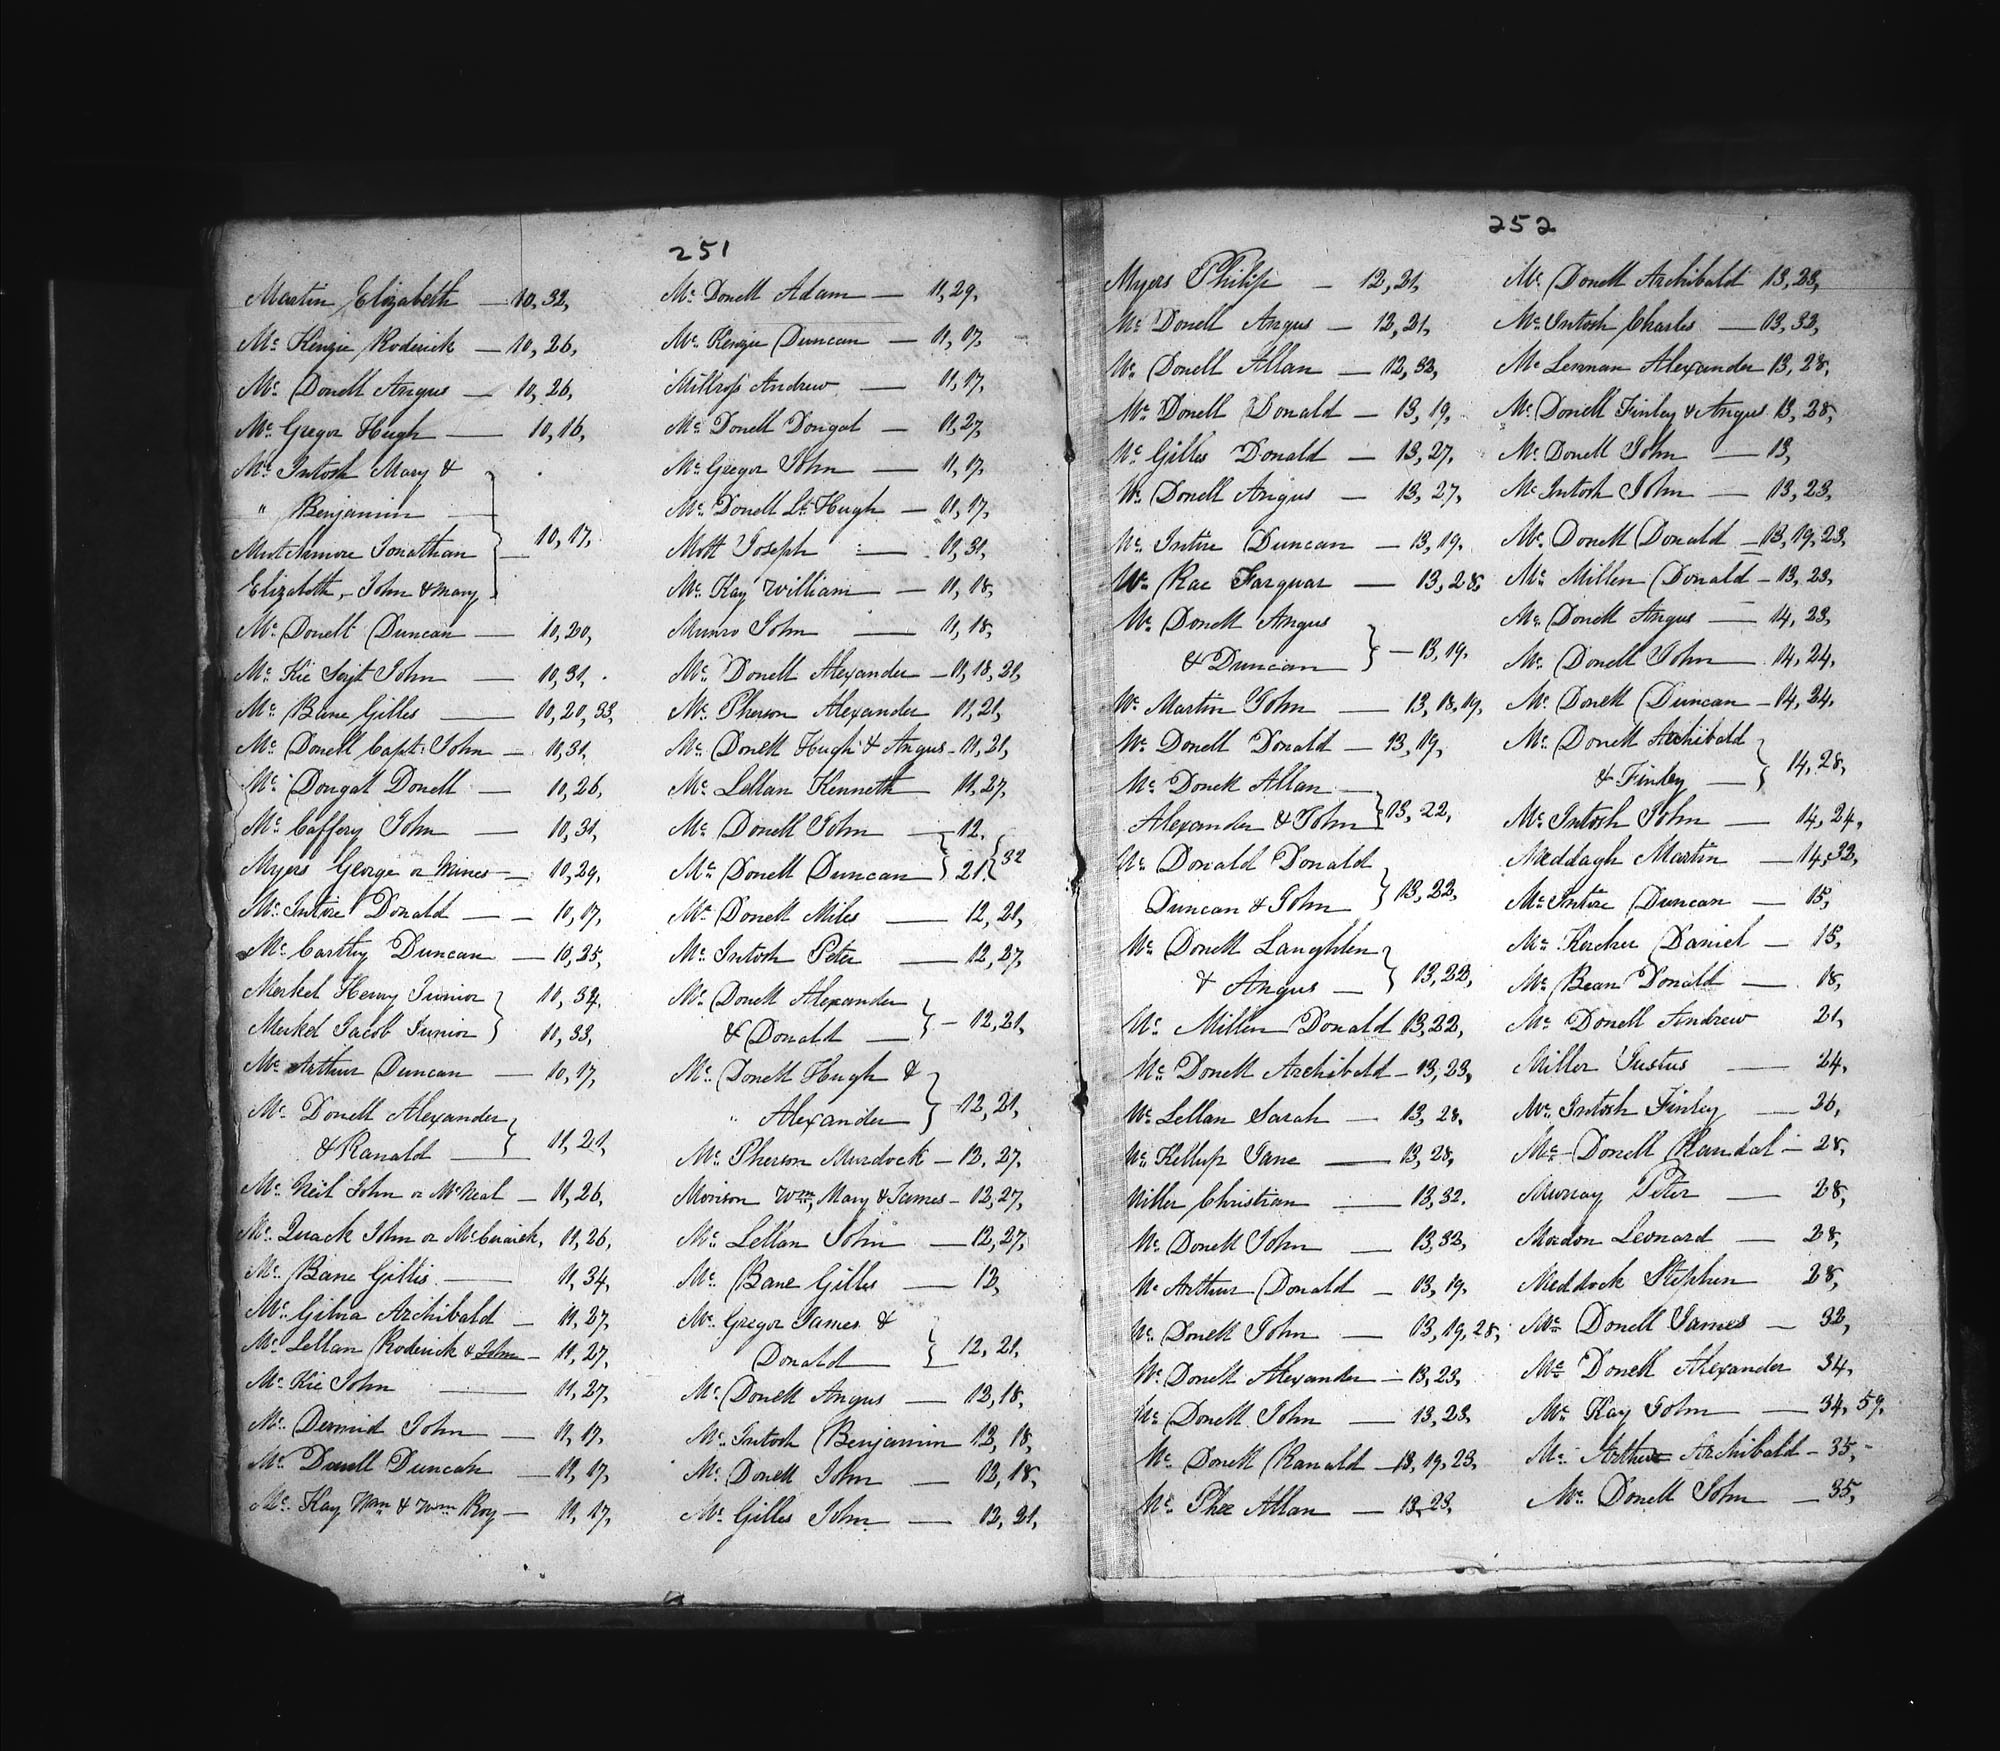 251
Martin Elizabeth — 10, 32,
Mc. Kenzie Roderick — 10, 26,
Mc. Donell Angus — 10, 26,
Mc. Gregor Hugh — 10, 16,
Mc. Intosh Mary &
" Benjamin —
Mutchmore Jonathan — 10, 17,
Elizabeth, John & Mary
Mc. Donell Duncan — 10, 20,
Mc. Kie Serjt John — 10, 31,
Mc. Bane Gilles — 10, 20, 33,
Mc. Donell Capt. John — 10, 31,
Mc. Dougal Donell — 10, 26,
Mc. Caffery John — 10, 31,
Myers George or Mines — 10, 29,
Mc. Intire Donald — 10, 17,
Mc. Carthy Duncan — 10, 25,
Merkel Henry Junior 10, 34,
Merkel Jacob Junior 10, 33,
Mc. Arthur Duncan — 10, 17,
Mc. Donell Alexander
& Ranald — 11, 21,
Mc. Neil John or McNeal — 11, 26,
Mc. Quack John or Mc. 11, 26,
Mc. Bane Gillis — 11, 34,
Mc. Gilvra Archibald — 11, 27,
Mc. Lellan Roderick & John — 11, 27,
Mc. Kie John — 11, 27,
Mc. Dermid John — 11, 17,
Mc. Donell Duncan — 11, 17,
Mc. Kay Wm & Wm Roy — 11, 17,
Mc. Donell Adam — 11, 29,
Mc. Kenzie Duncan — 11, 17,
Milross Andrew — 11, 17,
Mc. Donell Dougal — 11, 27,
Mc. Gregor John — 11, 17,
Mc. Donell Lt. Hugh — 11, 17,
Mott Joseph — 11, 31,
Mc. Kay William — 11, 18,
Munro John — 11, 18,
Mc. Donell Alexander — 11, 18, 21,
Mc. Pherson Alexander 11, 21,
Mc. Donell Hugh & Angus — 11, 21,
Mc. Lellan Kenneth — 11, 27,
Mc. Donell John — 12,
Mc. Donell Duncan 21, 32
Mc. Donell Miles — 12, 21,
Mc. Intosh Peter — 12, 27,
Mc. Donell Alexander
& Donald — 12, 21,
Mc. Donell Hugh &
" Alexander — 12, 21,
Mc. Pherson Murdock — 12, 27,
Morison Wm, Mary & James — 12, 27,
Mc. Lellan John — 12, 27,
Mc. Bane Gilles — 12,
Mc. Gregor James &
Donald — 12, 21,
Mc. Donell Angus — 12, 18,
Mc. Intosh Benjamin 12, 18,
Mc. Donell John — 12, 18,
Mc. Gilles John — 12, 21,
252
Myers Philip — 12, 21,
Mc. Donell Angus — 12, 21,
Mc. Donell Allan — 12, 32,
Mc. Donell Donald — 13, 19,
Mc. Gilles Donald — 13, 27,
Mc. Donell Angus — 13, 27,
Mc. Intire Duncan — 13, 19,
Mc. Rae Farquar — 13, 28,
Mc. Donell Angus
& Duncan — 13, 19,
Mc. Martin John — 13, 18, 19,
Mc. Donell Donald — 13, 19,
Mc. Donell Allan —
Alexander & John 13, 22,
Mc. Donald Donald
Duncan & John 13, 22,
Mc. Donell Laughlen
& Angus — 13, 22,
Mc. Millen Donald 13, 22,
Mc. Donell Archibald — 13, 23,
Mc. Lellan Sarah — 13, 28,
Mc. Kellup Jane — 13, 28,
Miller Christian — 13, 32,
Mc. Donell John — 13, 32,
Mc. Arthur Donald — 13, 19,
Mc. Donell John — 13, 19, 28,
Mc. Donell Alexander — 13, 23,
Mc. Donell John — 13, 23,
Mc. Donell Ranald — 13, 19, 23,
Mc. Phee Allan — 13, 23,
Mc. Donell Archibald 13, 23,
Mc. Intosh Charles — 13, 33,
Mc Lennan Alexander 13, 28,
Mc. Donell Finley & Angus 13, 28,
Mc. Donell John — 13,
Mc. Intosh John — 13, 23,
Mc. Donell Donald — 13, 19, 23,
Mc. Millen Donald — 13, 23,
Mc. Donell Angus — 14, 23,
Mc. Donell John — 14, 24,
Mc. Donell Duncan — 14, 24,
Mc. Donell Archibald
& Finley — 14, 28,
Mc. Intosh John — 14, 24,
Meddagh Martin — 14, 32,
Mc. Intire Duncan — 15,
Mc. Kercher Daniel — 15,
Mc. Bean Donald — 18,
Mc. Donell Andrew 21,
Miller Justus — 24,
Mc. Intosh Finley — 26,
Mc. Donell Randal — 28,
Murray Peter — 28,
Mordon Leonard — 28,
Meddock Stephen 28,
Mc. Donell James — 32,
Mc. Donell Alexander 34,
Mc. Kay John — 34, 59,
Mc. Arthur Archibald — 35,
Mc. Donell John — 35,